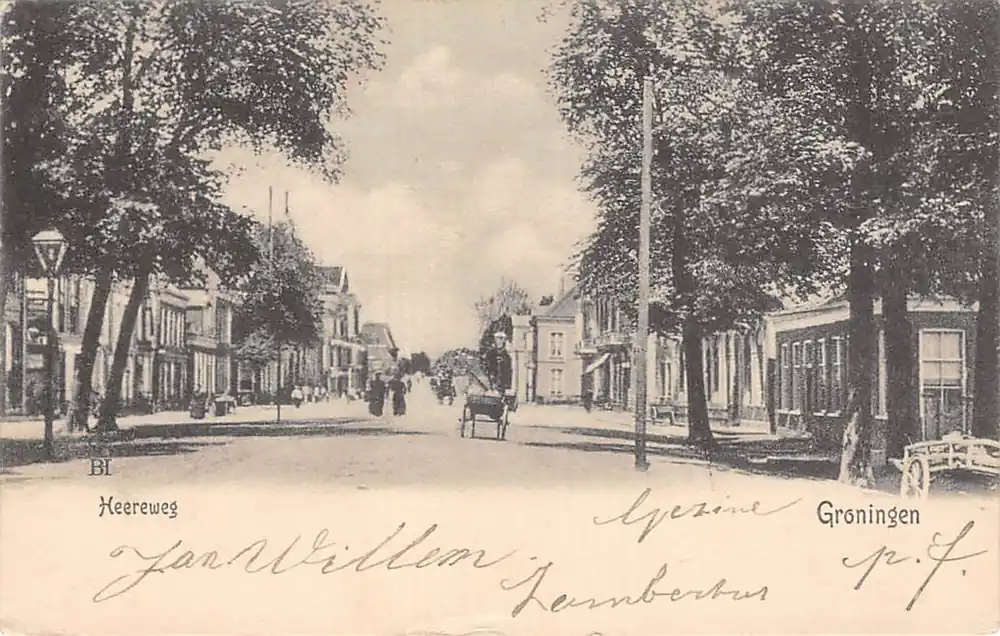 BI
Heereweg
Groningen
Gezine
Jan Willem
Lambertus
p.f.